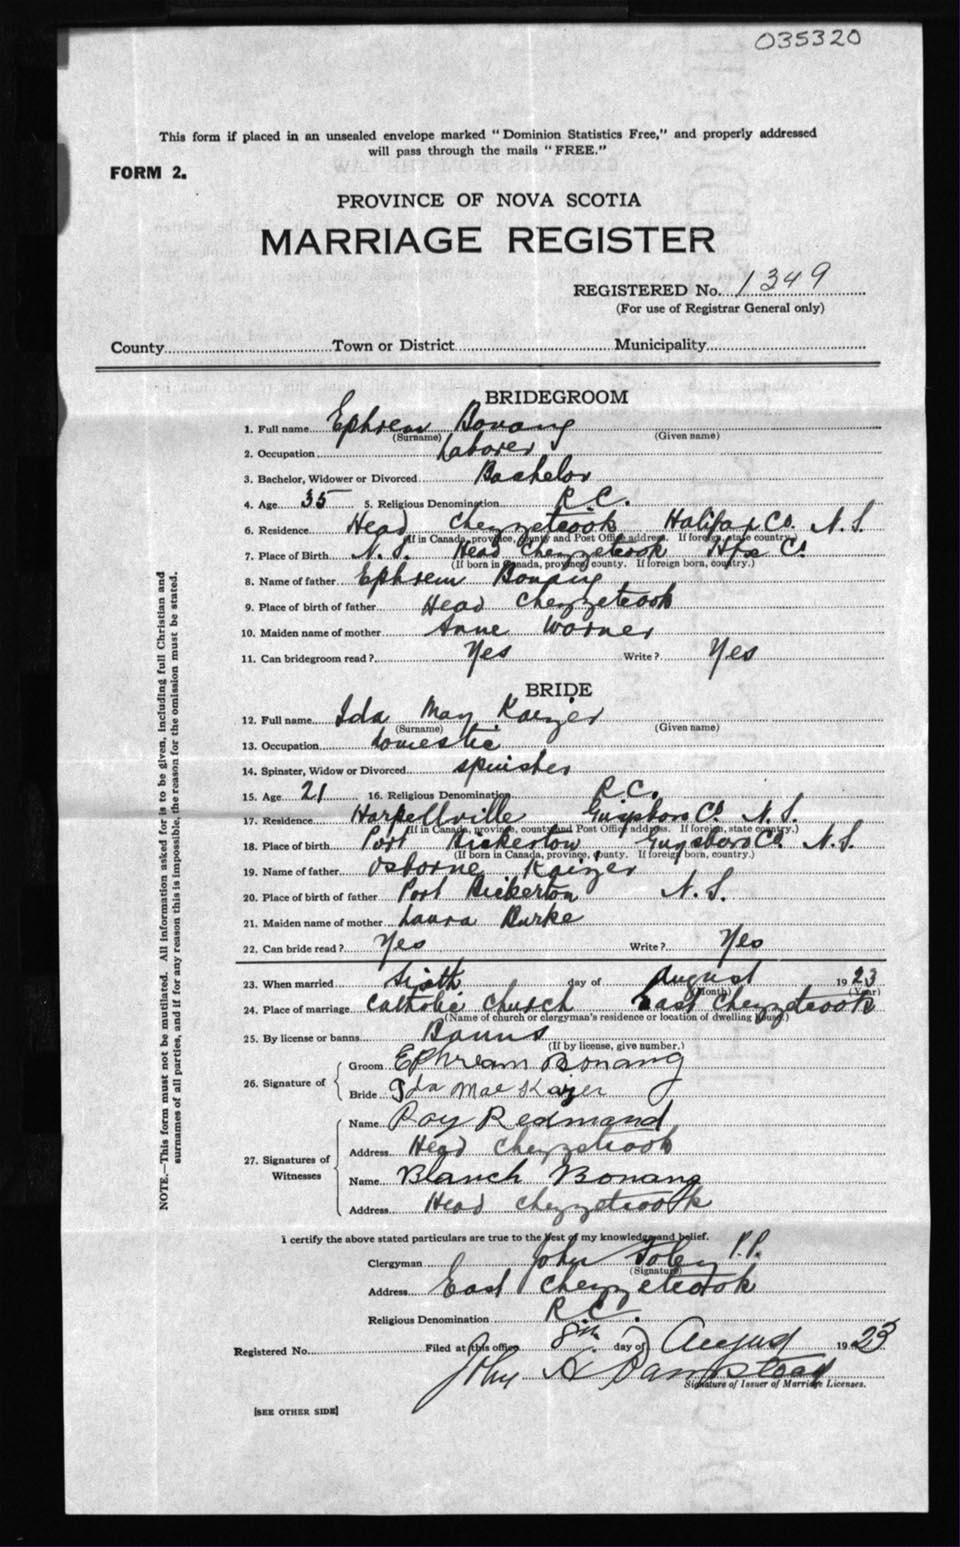 035320
This form if placed in an unsealed envelope marked "Dominion Statistics Free," and properly addressed
will pass through the mails "FREE."
FORM 2.
PROVINCE OF NOVA SCOTIA
MARRIAGE REGISTER
REGISTERED No. 1349
(For use of Registrar General only)
County Town or District Municipality
BRIDEGROOM
1. Full name Ephrem Bonang
(Surname) (Given name)
2. Occupation Laborer
3. Bachelor, Widower or Divorced Bachelor
4. Age 35 5. Religious Denomination R.C.
6. Residence Head Chezzetcook Halifax Co. N.S.
(If in Canada, province, county and Post Office address. If foreign, state country.)
7. Place of Birth N.S. Head Chezzetcook Hfx Co.
(If born in Canada, province, county. If foreign born, country.)
8. Name of father Ephrem Bonang
9. Place of birth of father Head Chezzetcook
10. Maiden name of mother Anne Warner
11. Can bridegroom read? Yes Write? Yes
BRIDE
12. Full name Ida May Kaizer
(Surname) (Given name)
13. Occupation domestic
14. Spinster, Widow or Divorced spinster
15. Age 21 16. Religious Denomination R.C.
17. Residence Harpellville Guysboro Co. N.S.
(If in Canada, province, county and Post Office address. If foreign, state country.)
18. Place of birth Port Bickerton Guysboro Co. N.S.
(If born in Canada, province, county. If foreign born, country.)
19. Name of father Osborne Kaizer
20. Place of birth of father Port Bickerton N.S.
21. Maiden name of mother Laura Burke
22. Can bride read? Yes Write? Yes
23. When married Sixth day of August 1923
(Month) (Year)
24. Place of marriage Catholic Church East Chezzetcook
(Name of church or clergyman's residence or location of dwelling house.)
25. By license or banns Banns
(If by license, give number.)
26. Signature of
Groom Ephream Bonang
Bride Ida Mae Kaizer
27. Signatures of Witnesses
Name Roy Redmond
Address Head Chezzetcook
Name Blanch Bonang
Address Head Chezzetcook
I certify the above stated particulars are true to the best of my knowledge and belief.
Clergyman John Foley P.P.
(Signature)
Address East Chezzetcook
Religious Denomination R.C.
Registered No. Filed at this office 8th day of August 1923
John
Signature of Issuer of Marriage Licenses.
[SEE OTHER SIDE]
NOTE.—This form must not be mutilated. All information asked for is to be given, including full Christian and
surnames of all parties, and if for any reason this is impossible, the reason for the omission must be stated.